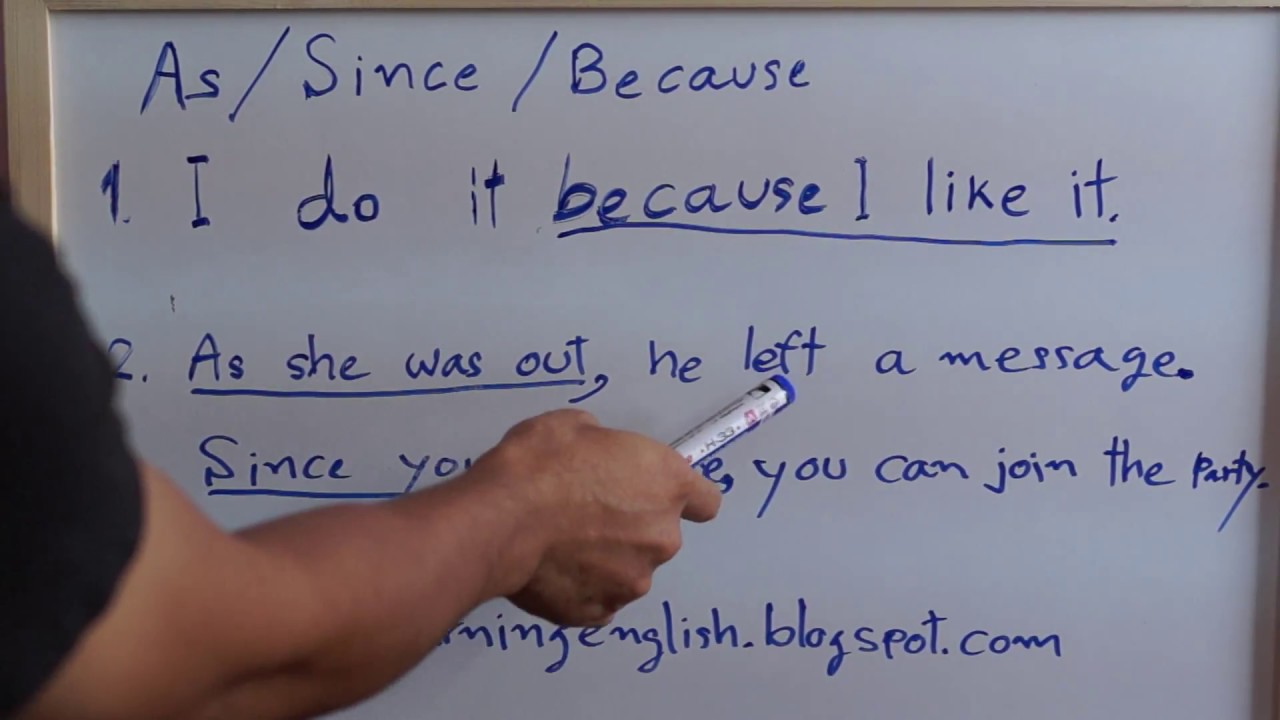 As/Since/Because
1. I do it because I like it.
2. As she was out, he left a message.
Since you can join the Party.
english.blogspot.com